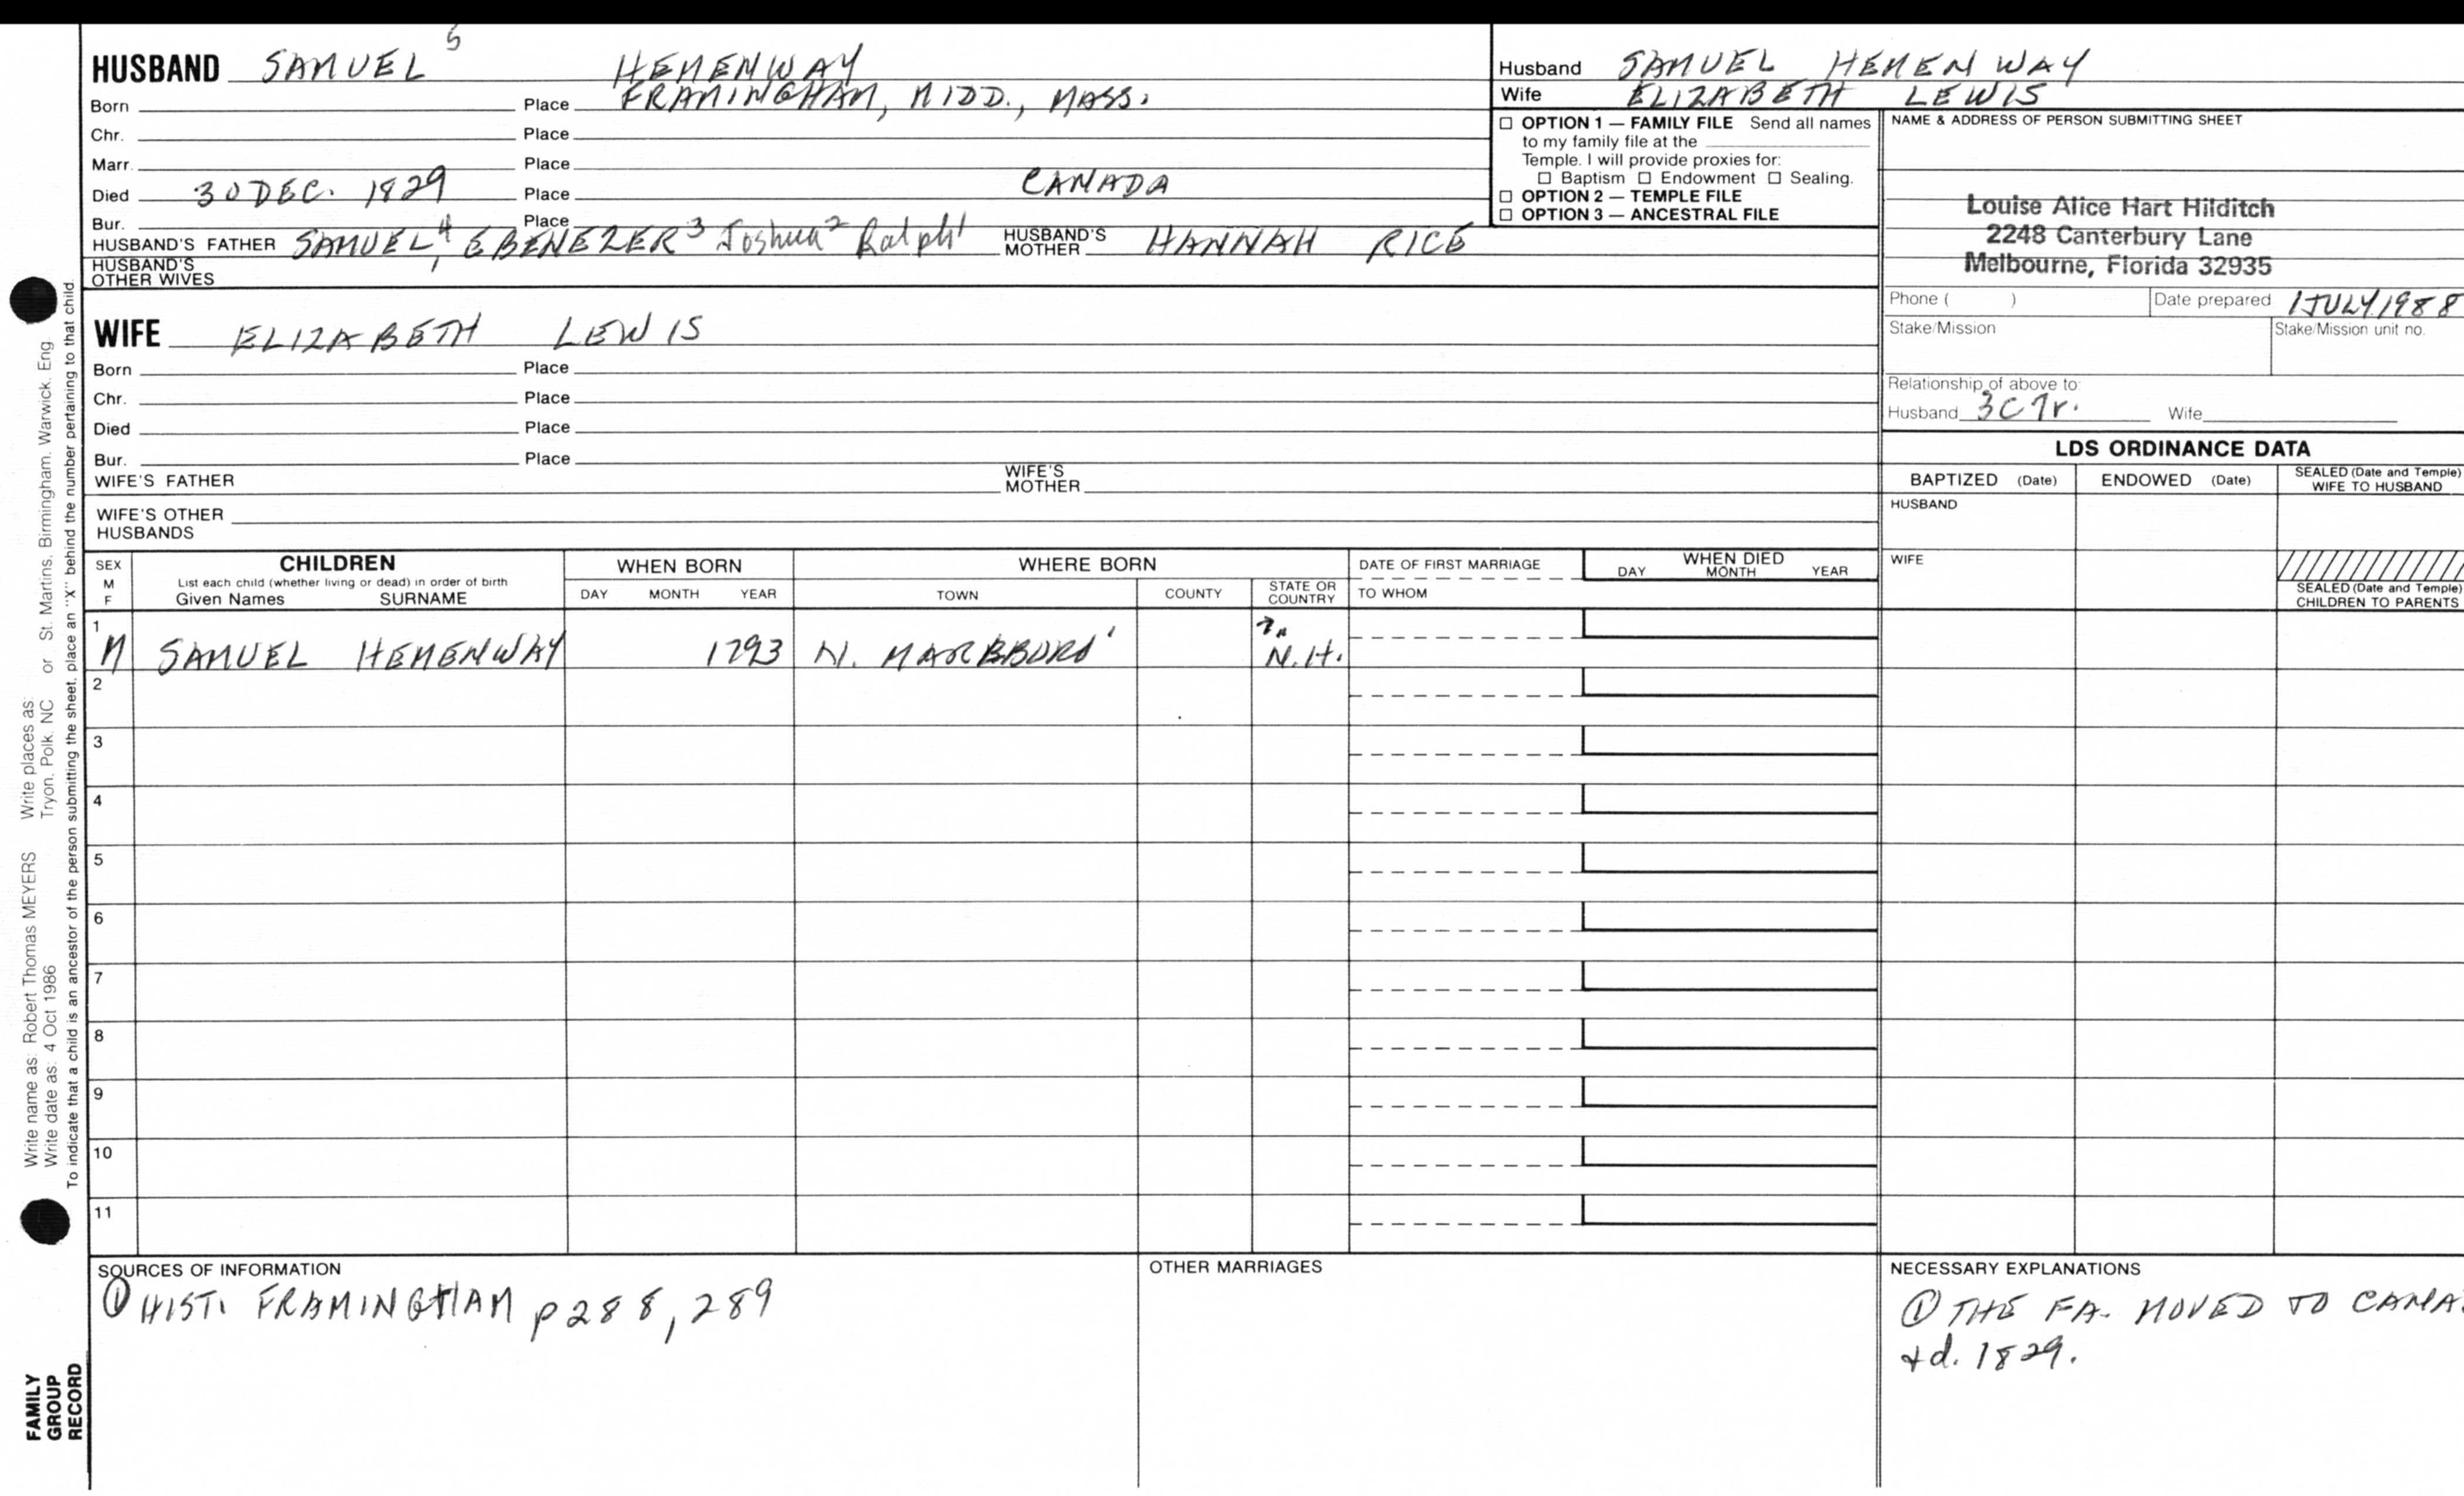 HUSBAND SAMUEL 5 HEMENWAY
Born Place FRAMINGHAM, MIDD., MASS.
Chr. Place
Marr. Place
Died 30 DEC. 1829 Place CANADA
Bur. Place
HUSBAND'S FATHER SAMUEL4, EBENEZER3 Joshua2 Ralph1 HUSBAND'S MOTHER HANNAH RICE
HUSBAND'S OTHER WIVES
WIFE ELIZABETH LEWIS
Born Place
Chr. Place
Died Place
Bur. Place
WIFE'S FATHER WIFE'S MOTHER
WIFE'S OTHER HUSBANDS
Husband SAMUEL HEMENWAY
Wife ELIZABETH LEWIS
☐ OPTION 1 — FAMILY FILE Send all names
to my family file at the
Temple. I will provide proxies for:
☐ Baptism ☐ Endowment ☐ Sealing.
☐ OPTION 2 — TEMPLE FILE
☐ OPTION 3 — ANCESTRAL FILE
NAME & ADDRESS OF PERSON SUBMITTING SHEET
Louise Alice Hart Hilditch
2248 Canterbury Lane
Melbourne, Florida 32935
Phone ( ) Date prepared 1 JULY 1988
Stake/Mission Stake/Mission unit no.
Relationship of above to:
Husband 3C7r. Wife
LDS ORDINANCE DATA
BAPTIZED (Date) ENDOWED (Date) SEALED (Date and Temple) WIFE TO HUSBAND
HUSBAND
WIFE
SEALED (Date and Temple) CHILDREN TO PARENTS
SEX M F
CHILDREN
List each child (whether living or dead) in order of birth
Given Names SURNAME
WHEN BORN
DAY MONTH YEAR
WHERE BORN
TOWN COUNTY STATE OR COUNTRY
DATE OF FIRST MARRIAGE
TO WHOM
WHEN DIED
DAY MONTH YEAR
1 M SAMUEL HEMENWAY 1793 N. MARBBORO' N.H.
2
3
4
5
6
7
8
9
10
11
SOURCES OF INFORMATION
① HIST. FRAMINGHAM p288, 289
OTHER MARRIAGES
NECESSARY EXPLANATIONS
① THE FA. MOVED TO CANA
+d. 1829.
Write name as: Robert Thomas MEYERS Write places as:
Write date as: 4 Oct 1986 Tryon, Polk, NC or St. Martins, Birmingham, Warwick, Eng
To indicate that a child is an ancestor of the person submitting the sheet, place an "X" behind the number pertaining to that child.
FAMILY
GROUP
RECORD